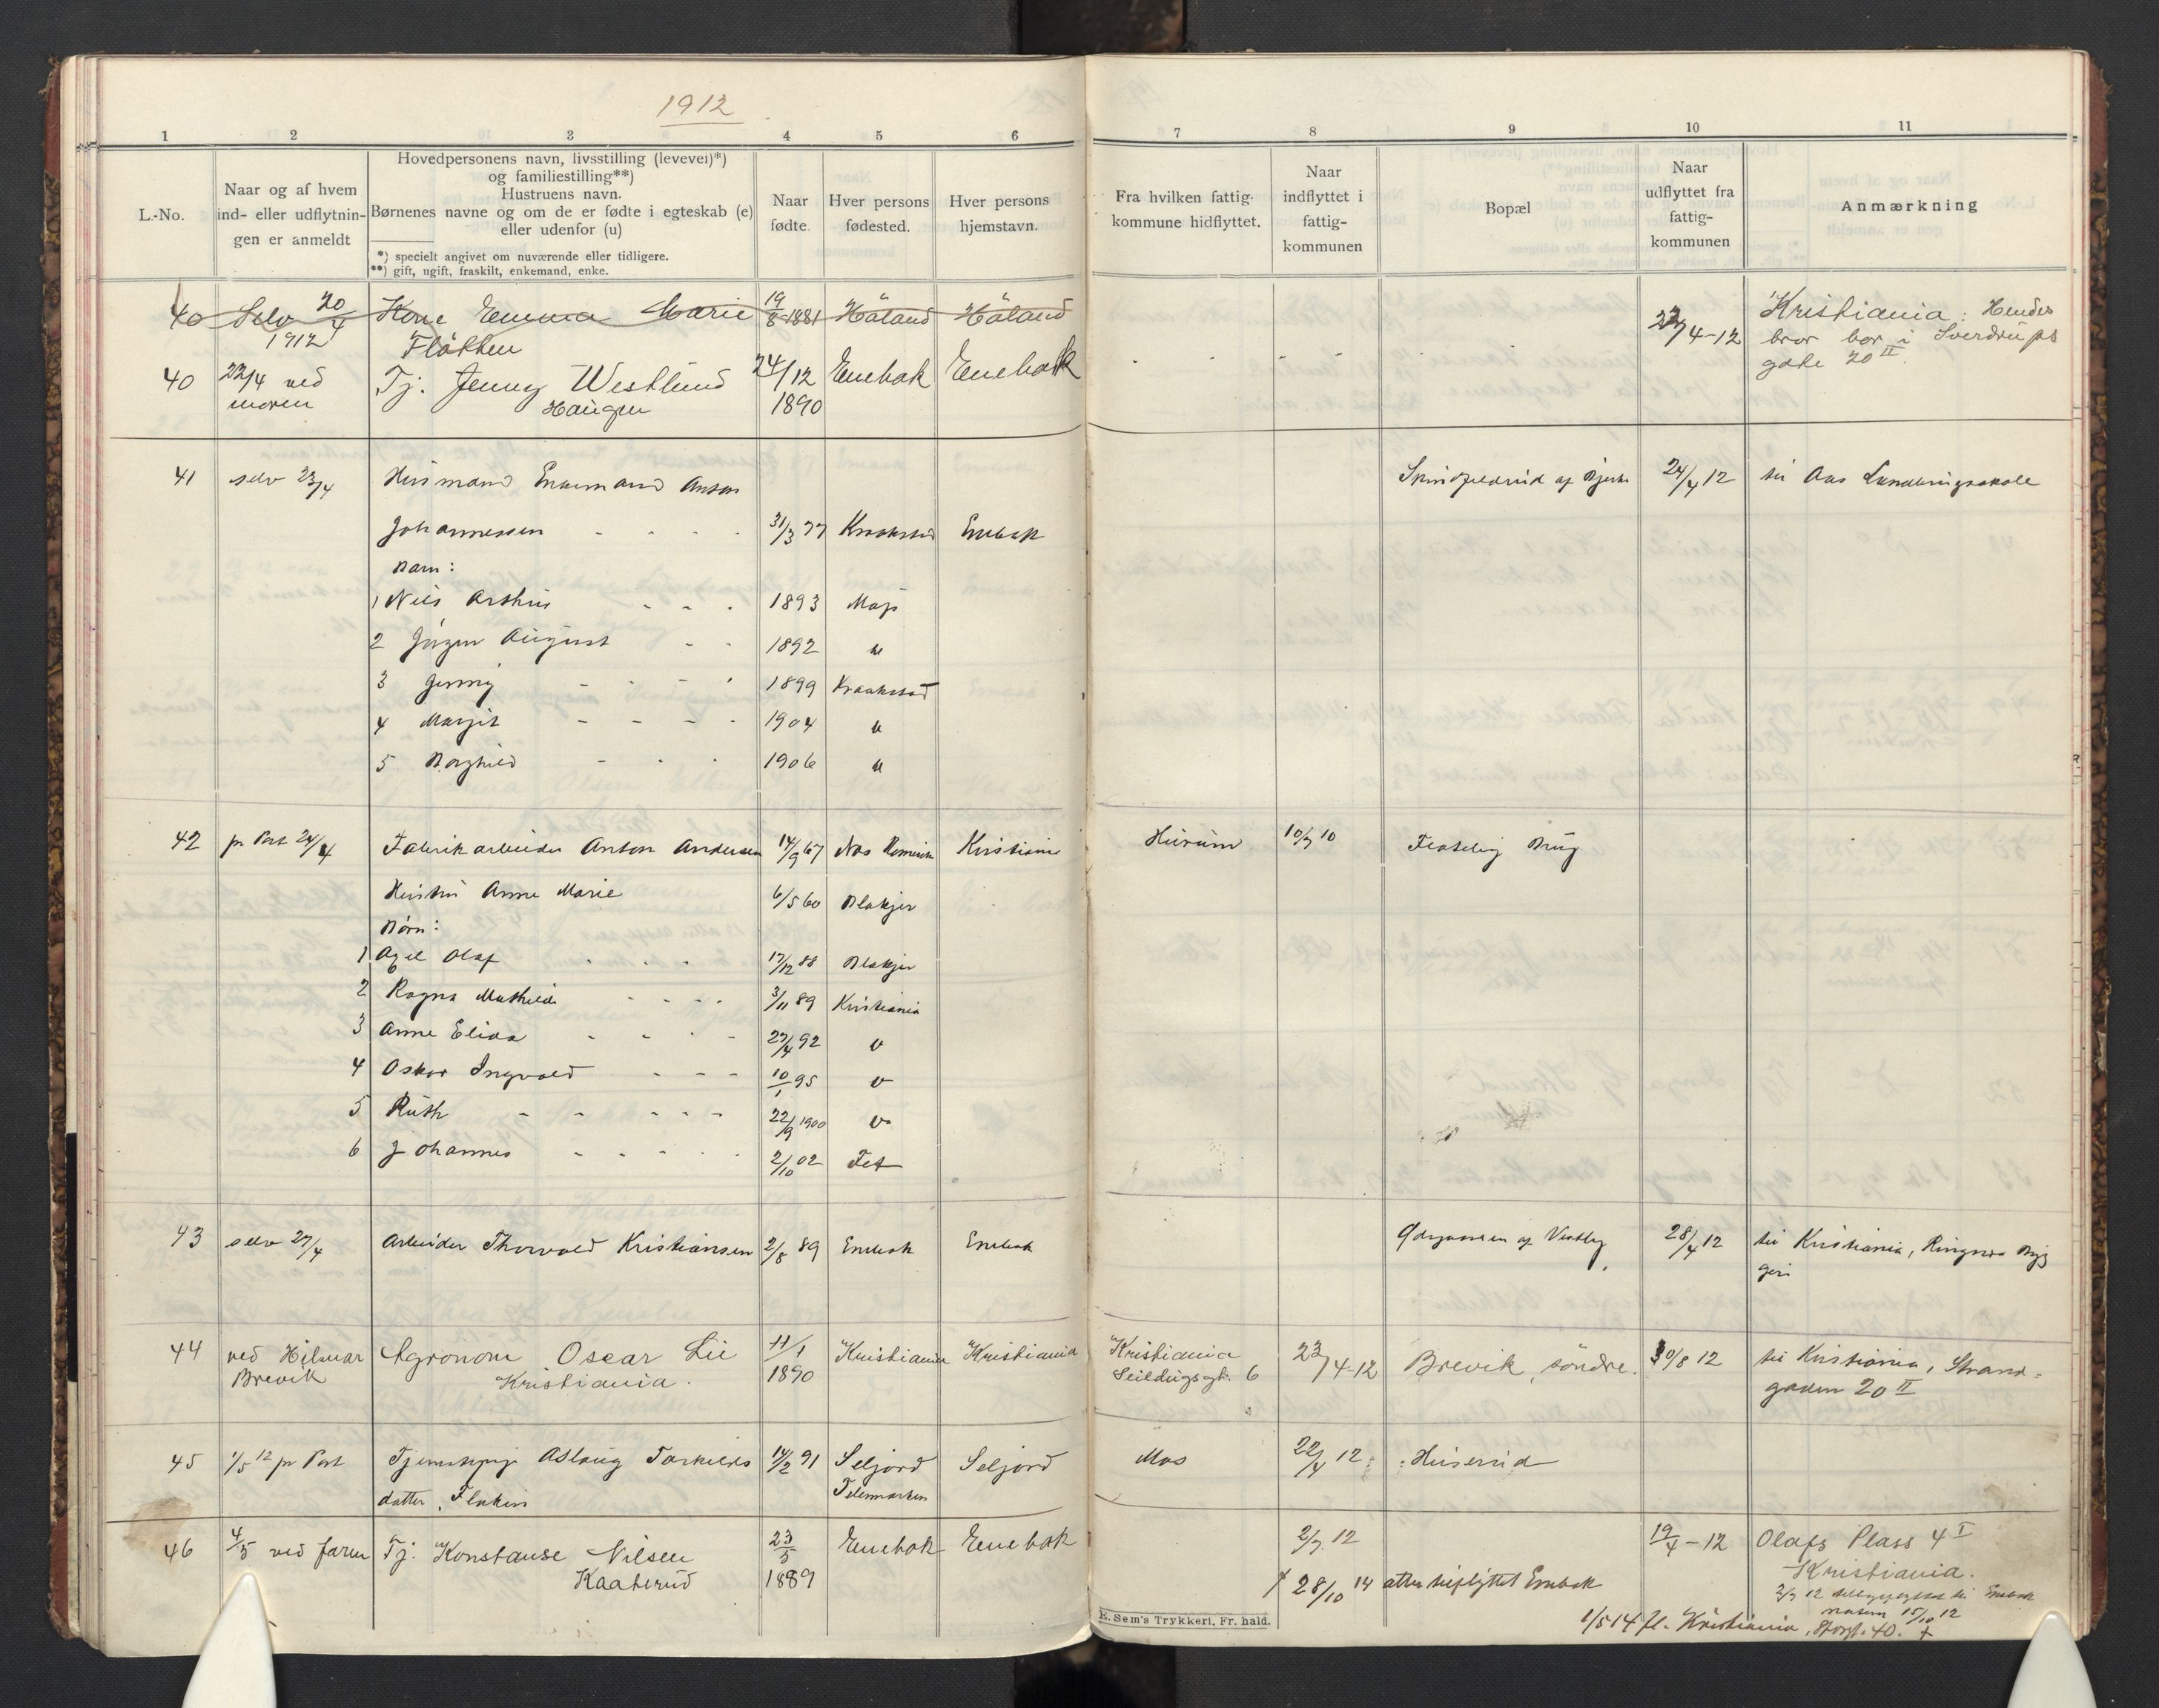 1912
1 2 3 4 5 6 7 8 9 10 11
L.-No.
Naar og af hvem
ind- eller udflytnin-
gen er anmeldt
Hovedpersonens navn, livsstilling (levevei)*)
og familiestilling**)
Hustruens navn.
Børnenes navne og om de er fødte i egteskab (e)
eller udenfor (u)
*) specielt angivet om nuværende eller tidligere.
**) gift, ugift, fraskilt, enkemand, enke.
Naar
fødte.
Hver persons
fødested.
Hver persons
hjemstavn.
Fra hvilken fattig-
kommune hidflyttet.
Naar
indflyttet i
fattig-
kommunen
Bopæl
Naar
udflyttet fra
fattig-
kommunen
Anmærkning
40 Selv 20/4 Kone Emma Marie 19/8-1881 Höland Höland
1912 Flötten
40 22/4 ved Tj. Jenny Westlund 24/12 Enebak Enebak 4-12 Kristiania: Hendes
moren Haugen 1890 bror bor i Sverdrups
gate 20 II.
41 selv 23/4 Husmand Enkemand Anton 24/4 12 til Aas
Johannessen 31/3 77 Kraakstad Enebak
Barn:
1 Nils Arthur 1893 Moss
2 Jörgen August 1892 "
3 Jenny 1899 Kraakstad
4 Margit 1904 "
5 Borghild 1906 "
42 pr Post 24/4 Fabrikarbeider Anton Andersen 14/9 67 Nes Romerike Kristiania Hurum 10/7 10 Flateby Brug
Hustru Anne Marie 6/5 60 Blakjer
Börn:
1 Axel Olaf 17/12 88 Blakjer
2 Ragna Mathilde 3/11 89 Kristiania
3 Anne Elida 27/4 92 "
4 Oskar Ingvald 10/1 95 "
5 Ruth 22/9 1900 "
6 Johannes 2/10 02 Fet
43 selv 27/4 Arbeider Thorvald Kristiansen 2/8 89 Enebak Enebak af Vestby 28/4 12 til Kristiania, Ringnes Bryg
geri
44 ved Hilmar Agronom Oscar Lie 11/1 Kristiania Kristiania Kristiania 23/4-12 Brevik, söndre. 30/8 12 til Kristiania, Strand-
Brevik Kristiania. 1890 Seildugsgt. 6 gaden 20 II
45 1/5 12 pr Post Tjenestepige Aslaug Torkilds 14/2 91 Seljord Seljord Mos 22/4 12 Huserud
datter, Flaten Telemarken
46 4/5 ved faren Tj. Konstanse Nilsen 23/5 Enebak Enebak 2/7 12 19/4-12 Olafs Plass 4 I
Kaaterud 1889 28/10 14 atter tilflyttet Enebak Kristiania.
2/7 12 tilbageflyttet til Enebak
15/10 12
1/5 14 fl. Kristiania, Storgt. 40. +
E. Sem's Trykkeri, Fr. hald.